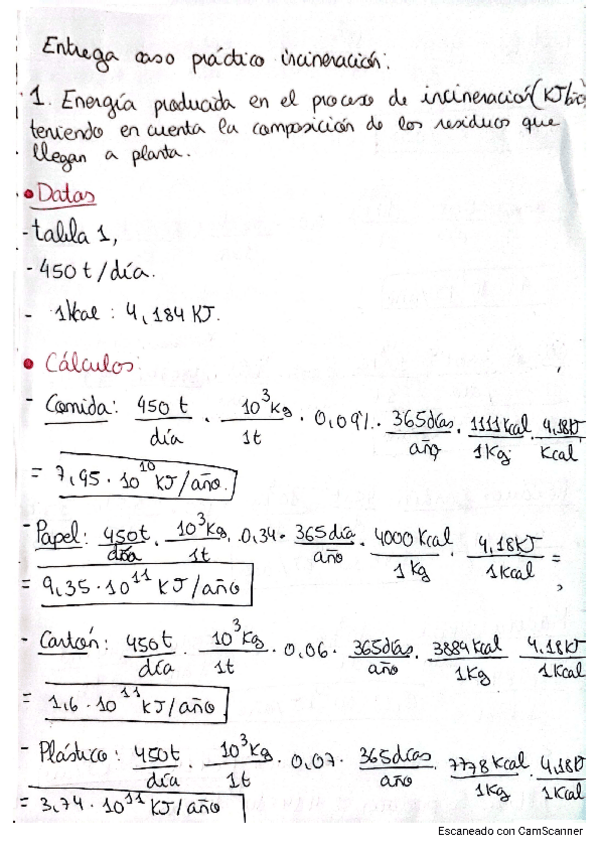 Entrega caso práctico incineración:
1. Energía producida en el proceso de incineración (KJ/año)
teniendo en cuenta la composición de los residuos que
llegan a planta.
• Datos
- tabla 1,
- 450 t/día.
- 1Kcal : 4,184 KJ.
• Cálculos:
- Comida: 450 t/día · 10³Kg/1t · 0,09 · 365días/año · 1111Kcal/1Kg · 4,18KJ/Kcal
= 7,95 · 10¹⁰ KJ/año.
- Papel: 450t/día · 10³Kg/1t · 0,34 · 365día/año · 4000 Kcal/1 Kg · 4,18KJ/1Kcal =
= 9,35 · 10¹¹ KJ/año
- Cartón: 450t/día · 10³Kg/1t · 0,06 · 365días/año · 3884 Kcal/1Kg · 4,18KJ/1Kcal
= 1,6 · 10¹¹ KJ/año
- Plástico: 450t/día · 10³Kg/1t · 0,07 · 365días/año · 7778 Kcal/1Kg · 4,18KJ/1Kcal
= 3,74 · 10¹¹ KJ/año
Escaneado con CamScanner